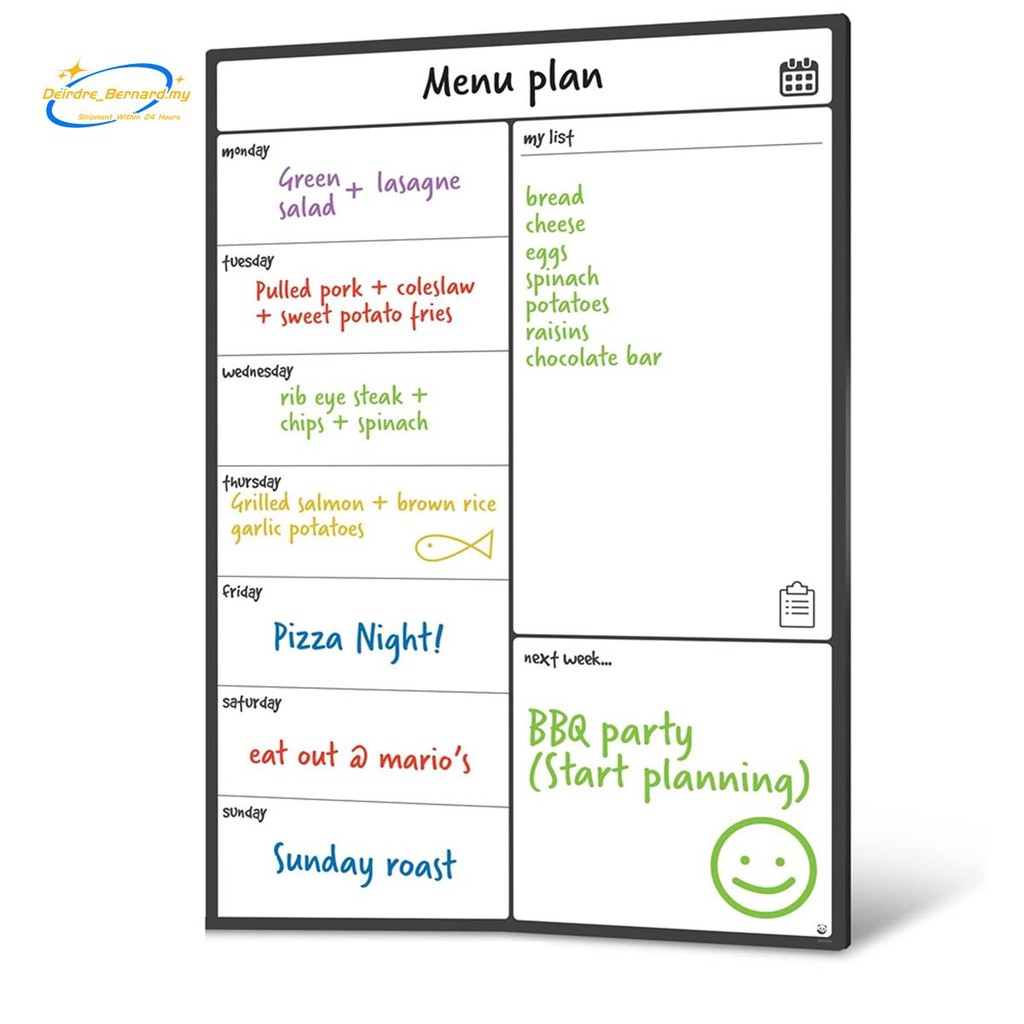 Deirdre_Bernard.my
Shipment Within 24 Hours
Menu plan
monday
Green
salad + lasagne
tuesday
Pulled pork + coleslaw
+ sweet potato fries
wednesday
rib eye steak +
chips + spinach
thursday
Grilled salmon + brown rice
garlic potatoes
friday
Pizza Night!
saturday
eat out @ mario's
sunday
Sunday roast
my list
bread
cheese
eggs
spinach
potatoes
raisins
chocolate bar
next week...
BBQ party
(Start planning)